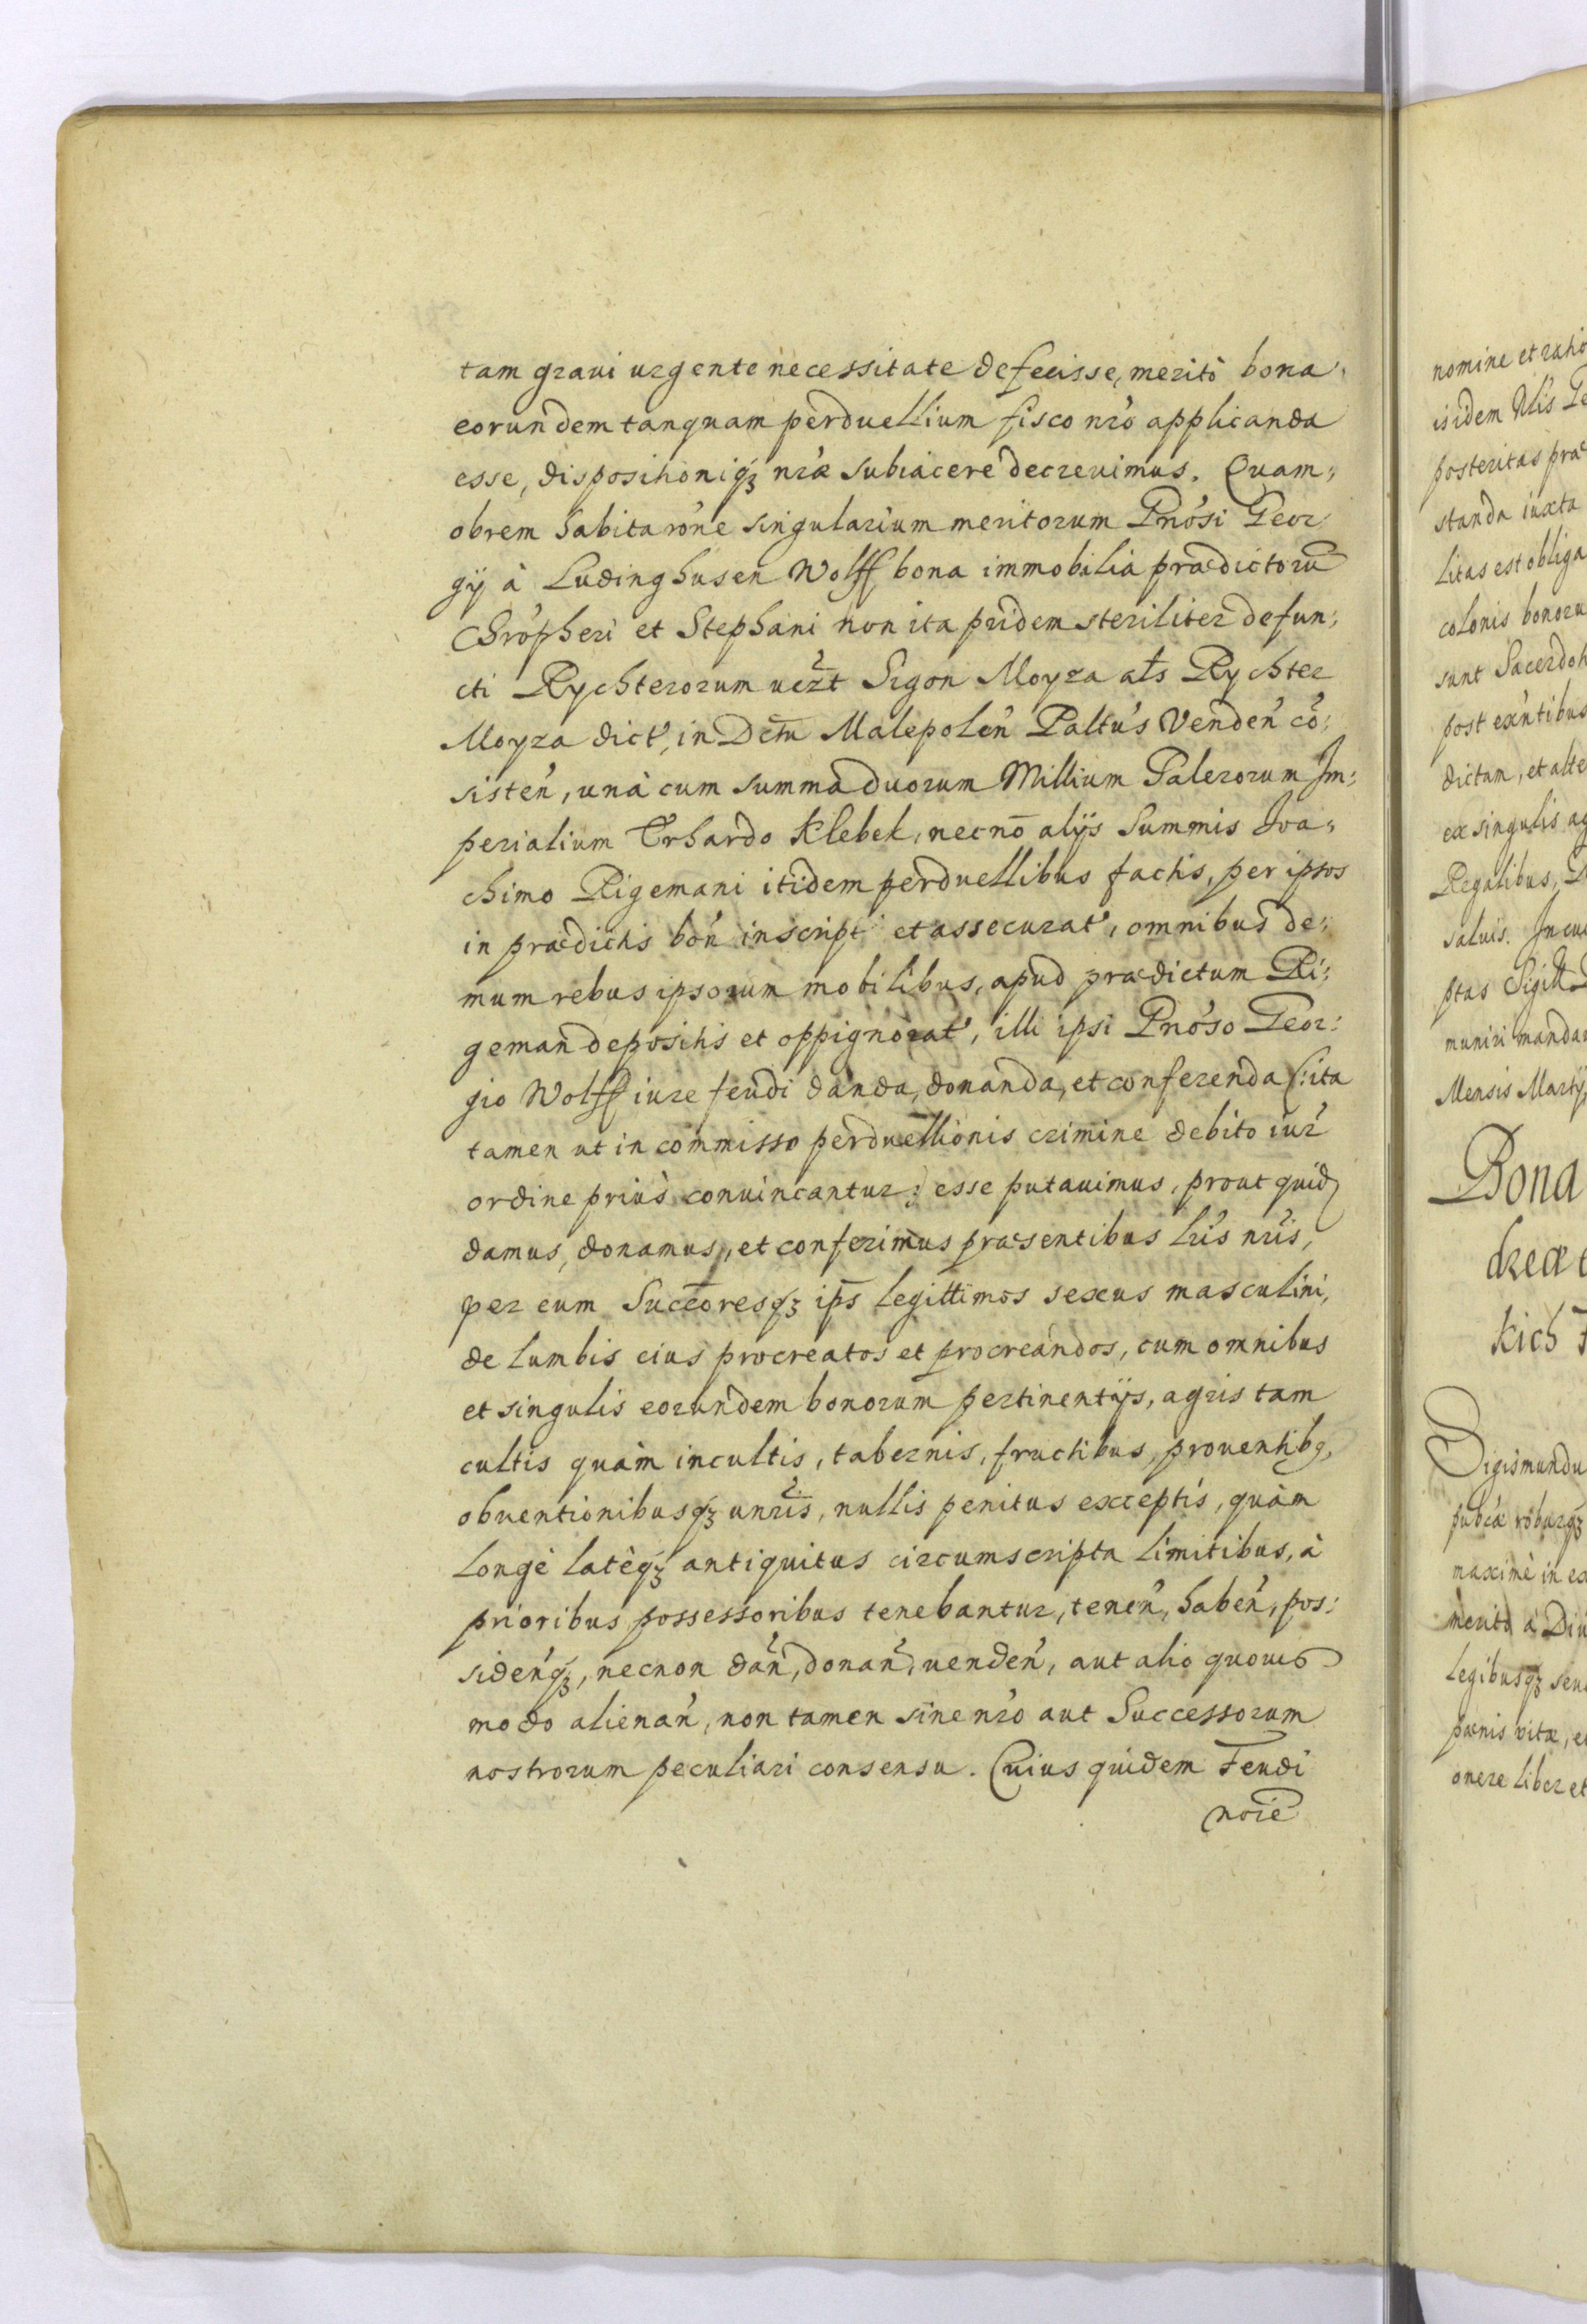 tam graui urgente necessitate defecisse, meritò bona
eorundem tanquam perduellium fisco nrõ applicanda
esse, dispositioniq₃ nrãe subiacere decreuimus. Quam,,
obrem habita rõne singularium meritorum Gnõsi Geor,,
gÿ à Ludinghusen Wolff, bona immobilia prædictorũ
Chrõpheri et Stephani non ita pridem steriliter defun,,
cti Rychterorum uerzt Sigon Moyza alš Rychter
Moyza dict', in Dcťu Malepolen̄ Paltũs Venden̄ cõ,,
sisten̄, unà cum summa duorum Millium Talerorum Im,,
perialium Erhardo Klebek, necnō alÿs Summis Ioa,,
chimo Rigemani itidem perduellibus factis, per ipsos
in prædictis bon̄ inscript' et assecurat', omnibus de,,
mum rebus ipsorum mobilibus, apud prædictum Ri,,
geman̄ depositis et oppignorat', illi ipsi Gnõso Geor:
gio Wolff iure feudi danda, donanda, et conferenda (:ita
tamen ut in commisso perduellionis crimine debito iur̃
ordine priùs conuincantur:) esse putauimus, prout quid
damus, donamus, et conferimus præsentibus lr̃is nr̃is,
per eum Succ̄oresq₃ ip̄s legittimos sexus masculini,
de lumbis eius procreatos et procreandos, cum omnibus
et singulis eorundem bonorum pertinentÿs, agris tam
cultis quàm incultis, tabernis, fructibus, prouentibq,
obuentionibusq₃ unr̃is, nullis penitus exceptis, quàm
longè latèq₃ antiquitus circumscripta limitibus, à
prioribus possessoribus tenebantur, tenen̄, haben̄, pos:
siden̄q₃, necnon dan̄, donan̄, uenden̄, aut alio quouis
modo alienan̄, non tamen sine nrõ aut Successorum
nostrorum peculiari consensu. Cuius quidem Feudi
noīe
nomine et ratio
isidem Illis Ge
posteritas præ
standa iuxta
litas est obliga
colonis bonoru
sunt Sacerdot
post exñtibus
dictam, et alte
ex singulis ag
Regalibus,
saluis. In cui
ptas Sigill
muniri mandau
Mensis Martÿ
Bona
dreæ
kich
Sigismundu
pubcæ roburq₃
maximè in ex
meritò à Diu
legibusq₃ seu
pænis vitæ, e
onere liber et